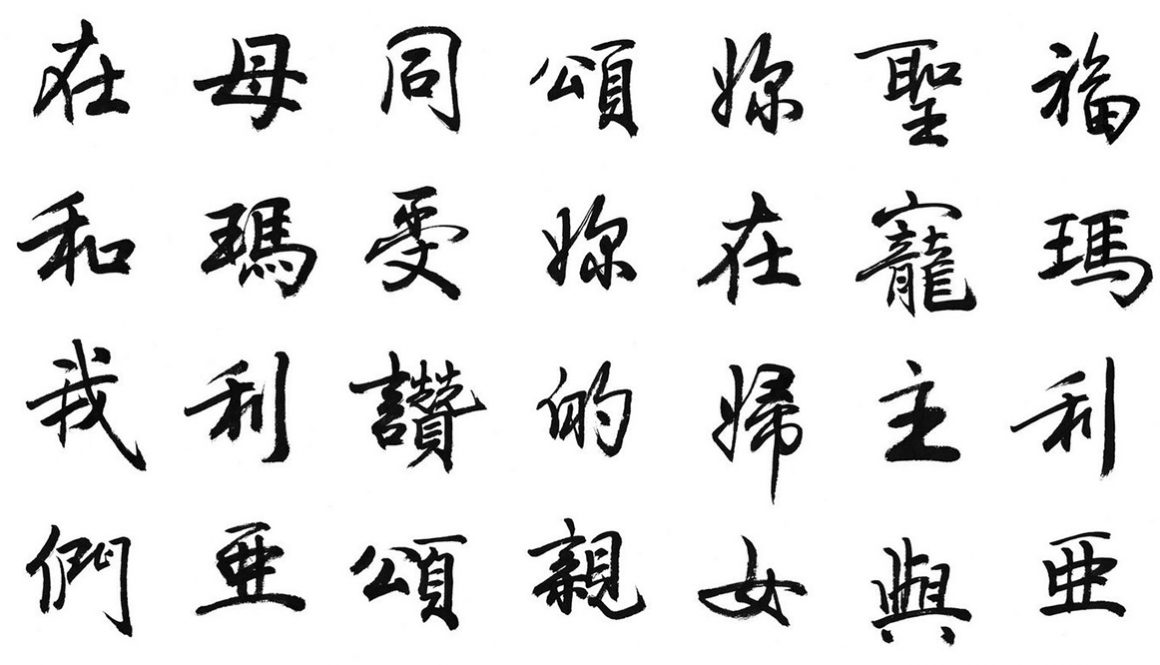 福瑪利亜
聖寵主與
妳在婦女
頌妳的親
同受讚頌
母瑪利亜
在和我們